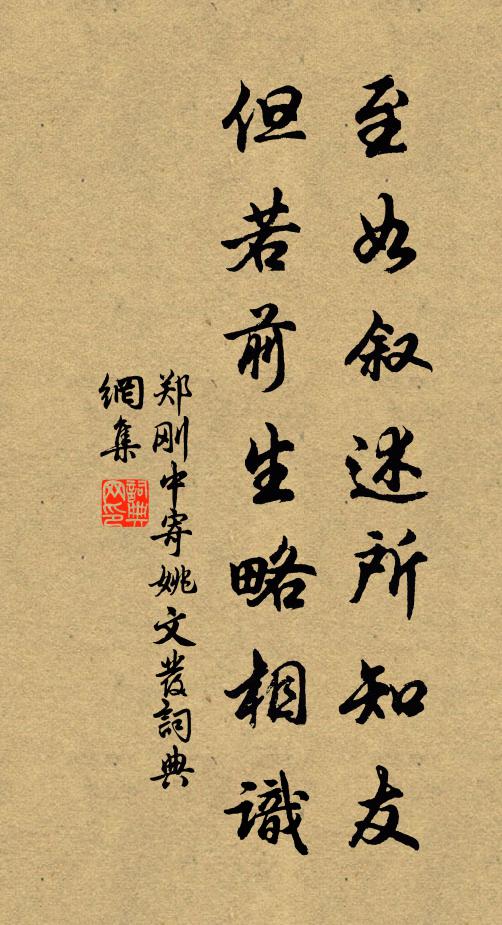 至如叙述所知友
但若前生略相識
郑刚中寄姚文發詞典
網集
詞典
网印